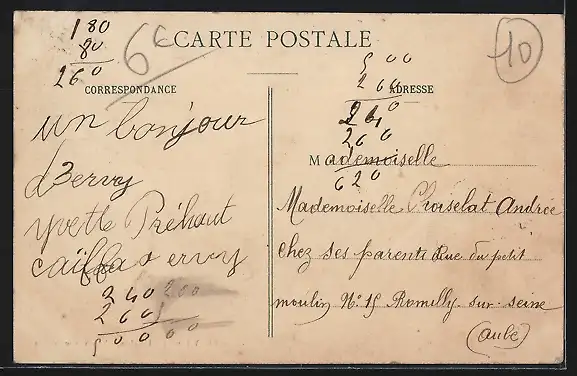 180
80
260
6c
CARTE POSTALE
10
CORRESPONDANCE
ADRESSE
500
260
260
620
un bonjour
d'Ervy
Yvette Préhaut
à Ervy
240 200
260
500 00
Mademoiselle
Mademoiselle Choiselat Andrée
chez ses parents Rue du petit
moulin N° 15 Romilly-sur-seine
(aube)